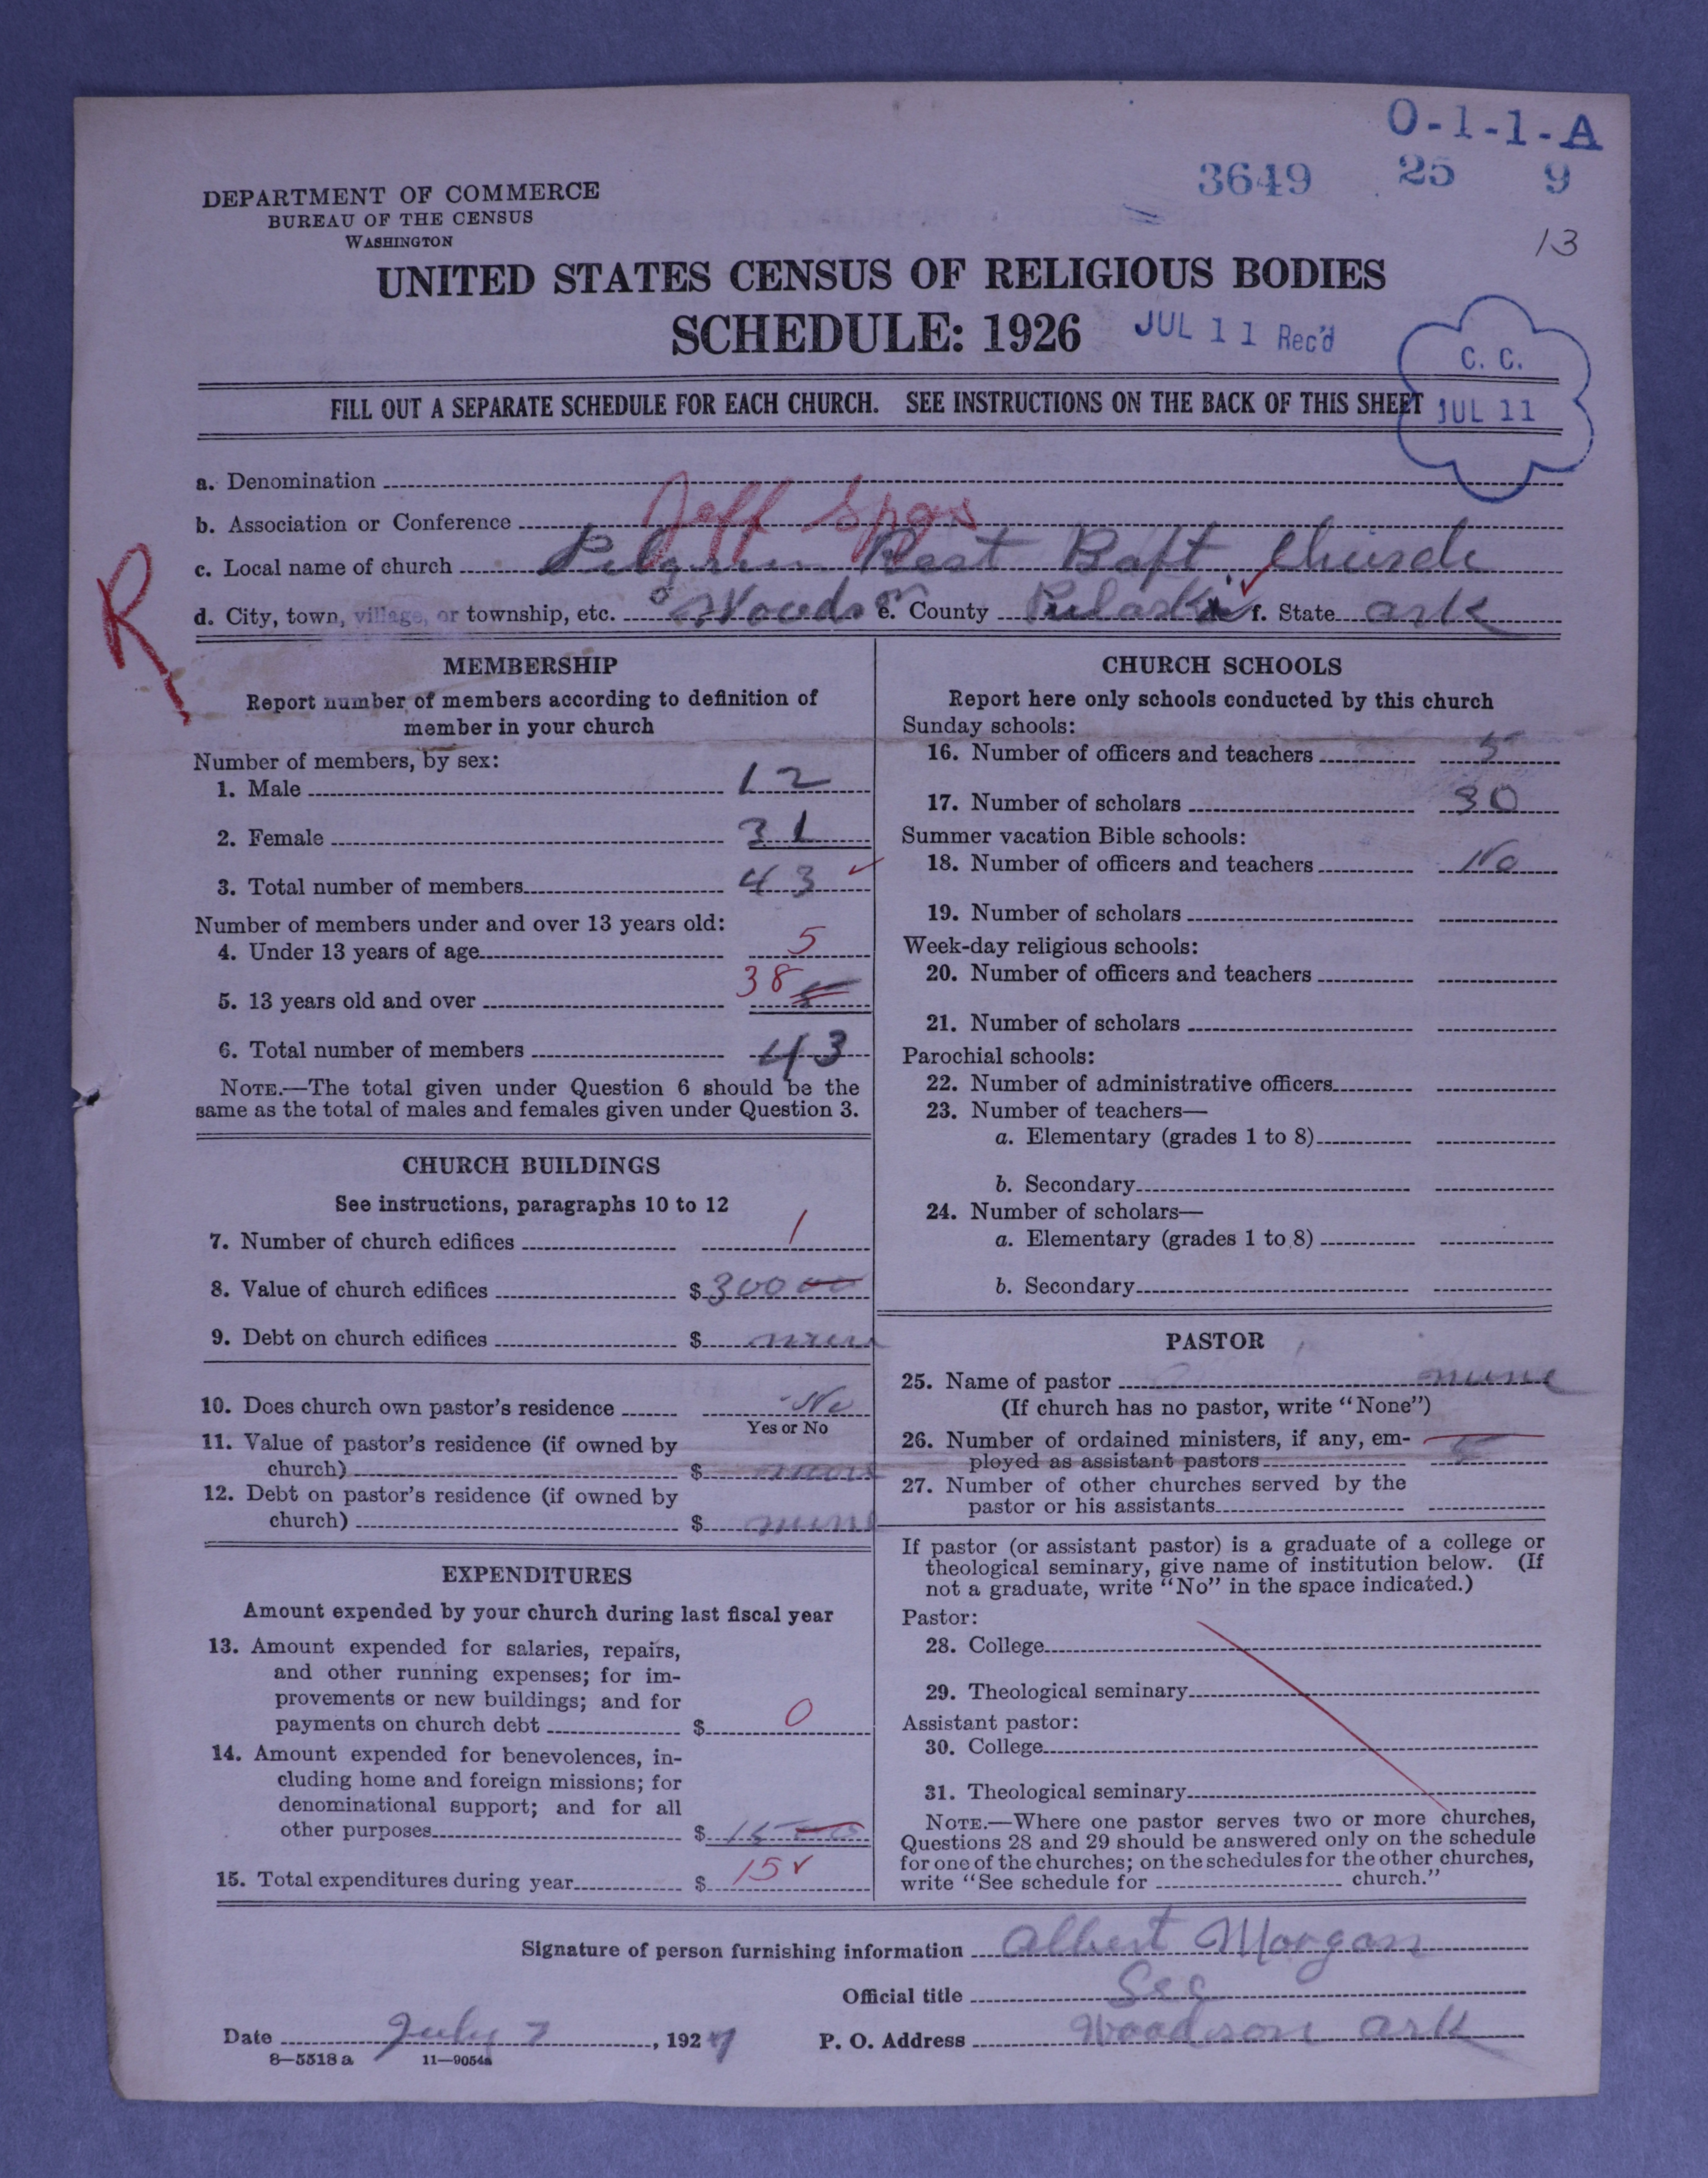 O-1-1-A
3649 25 9
13
DEPARTMENT OF COMMERCE
BUREAU OF THE CENSUS
WASHINGTON
UNITED STATES CENSUS OF RELIGIOUS BODIES
SCHEDULE: 1926
JUL 11 Rec'd
C. C.
JUL 11
FILL OUT A SEPARATE SCHEDULE FOR EACH CHURCH. SEE INSTRUCTIONS ON THE BACK OF THIS SHEET
R
a. Denomination
b. Association or Conference Jeff Spgs
c. Local name of church Pilgrim Rest Bapt Church
d. City, town, village, or township, etc. Woodson e. County Pulaski f. State Ark
MEMBERSHIP
Report number of members according to definition of
member in your church
Number of members, by sex:
1. Male 12
2. Female 31
3. Total number of members 43
Number of members under and over 13 years old:
4. Under 13 years of age 5
5. 13 years old and over 38
6. Total number of members 43
NOTE.—The total given under Question 6 should be the
same as the total of males and females given under Question 3.
CHURCH BUILDINGS
See instructions, paragraphs 10 to 12
7. Number of church edifices 1
8. Value of church edifices $ 300 00
9. Debt on church edifices $ none
10. Does church own pastor's residence No
Yes or No
11. Value of pastor's residence (if owned by
church) $ none
12. Debt on pastor's residence (if owned by
church) $ none
EXPENDITURES
Amount expended by your church during last fiscal year
13. Amount expended for salaries, repairs,
and other running expenses; for im-
provements or new buildings; and for
payments on church debt $ 0
14. Amount expended for benevolences, in-
cluding home and foreign missions; for
denominational support; and for all
other purposes $ 15 00
15. Total expenditures during year $ 15 ✓
CHURCH SCHOOLS
Report here only schools conducted by this church
Sunday schools:
16. Number of officers and teachers 5
17. Number of scholars 30
Summer vacation Bible schools:
18. Number of officers and teachers No
19. Number of scholars
Week-day religious schools:
20. Number of officers and teachers
21. Number of scholars
Parochial schools:
22. Number of administrative officers
23. Number of teachers—
a. Elementary (grades 1 to 8)
b. Secondary
24. Number of scholars—
a. Elementary (grades 1 to 8)
b. Secondary
PASTOR
25. Name of pastor none
(If church has no pastor, write "None")
26. Number of ordained ministers, if any, em-
ployed as assistant pastors
27. Number of other churches served by the
pastor or his assistants
If pastor (or assistant pastor) is a graduate of a college or
theological seminary, give name of institution below. (If
not a graduate, write "No" in the space indicated.)
Pastor:
28. College
29. Theological seminary
Assistant pastor:
30. College
31. Theological seminary
NOTE.—Where one pastor serves two or more churches,
Questions 28 and 29 should be answered only on the schedule
for one of the churches; on the schedules for the other churches,
write "See schedule for church."
Signature of person furnishing information Albert Morgan
Official title Sec
Date July 7, 1927 P. O. Address Woodson Ark
8—5518 a 11—9054a